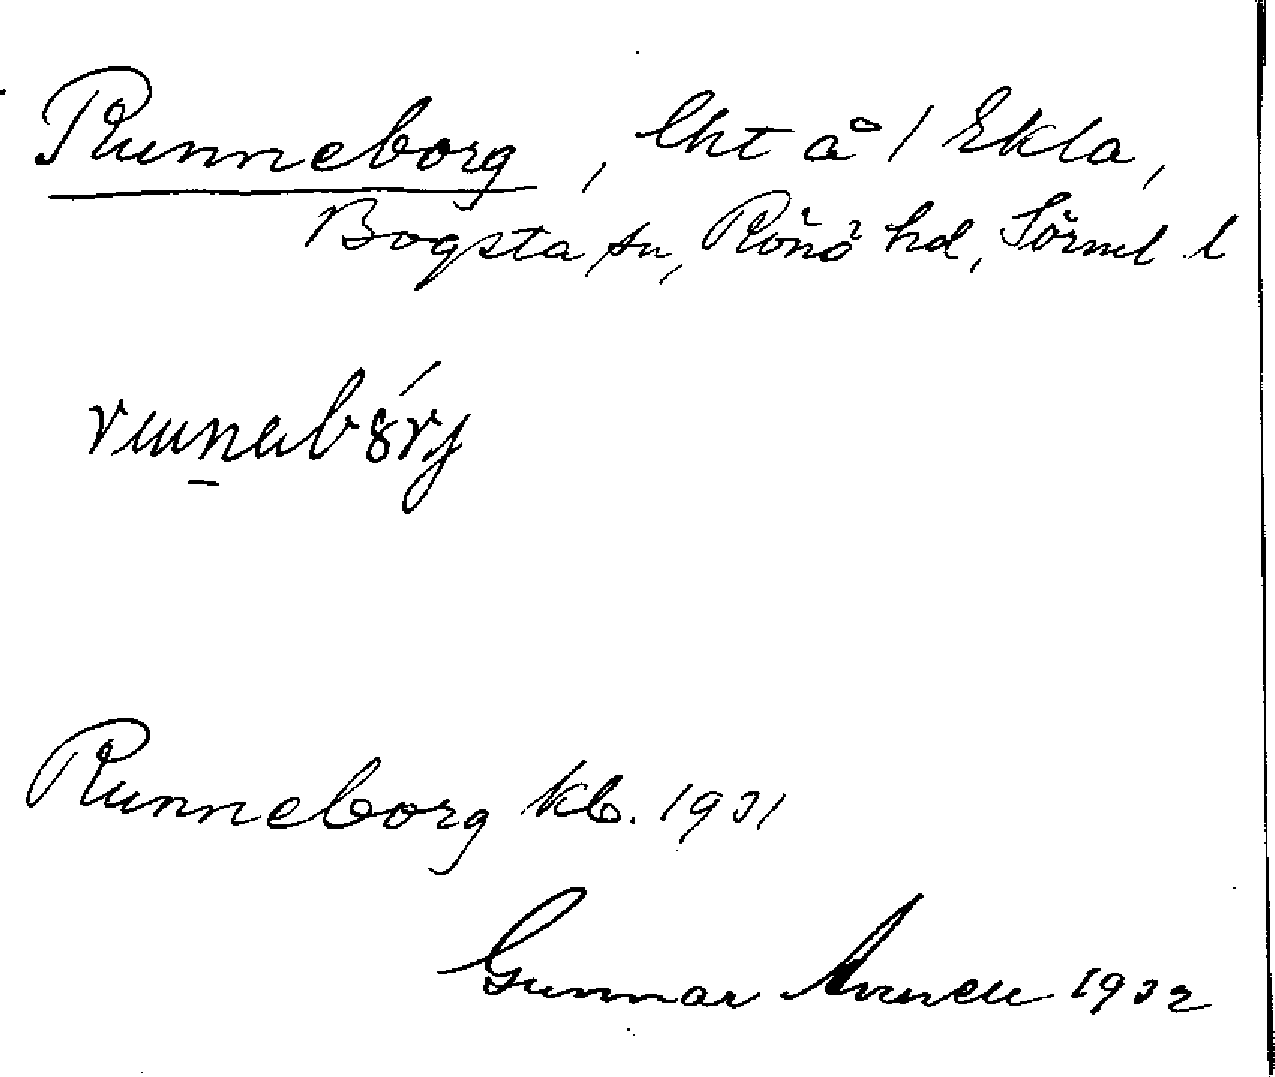 Runneborg, lht å 1 Ekla,
Bogsta sn, Rönö hd, Sörml l
Runneborg kb. 1931
Gunnar 1932